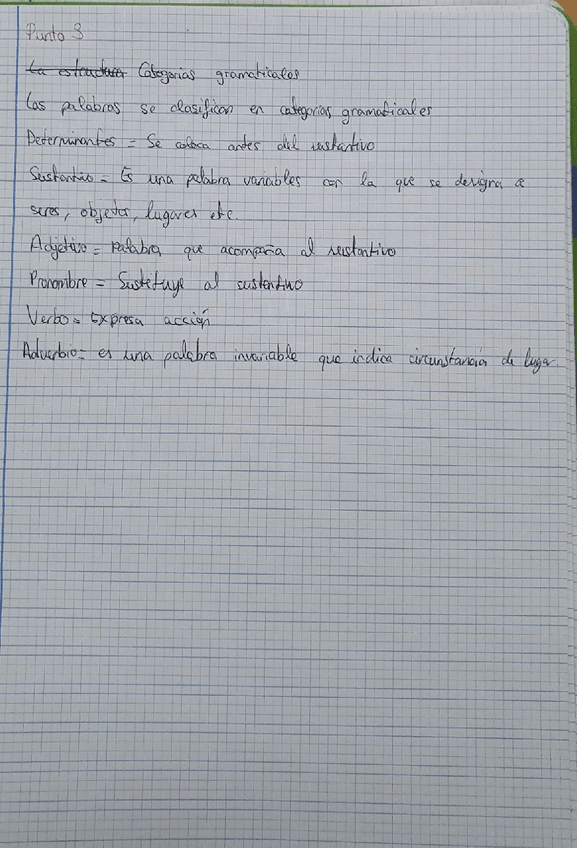 Punto 3
La estructura Categorias gramaticales
Las palabras se clasifican en categorias gramaticales
Determinantes = Se coloca antes del sustantivo
Sustantivo = Es una palabra variables con la que se designa a
seres, objetos, lugares etc.
Adjetivo = Palabra que acompaña al sustantivo
Pronombre = Sustetuye al sustentivo
Verbo = Expresa acción
Adverbio = es una palabra invariable que indica circunstancia de lugar